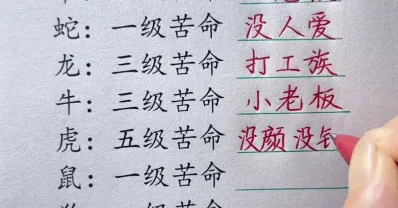 蛇：一级苦命 没人爱
龙：三级苦命 打工族
牛：三级苦命 小老板
虎：五级苦命 没颜没
鼠：一级苦命
：一级苦命